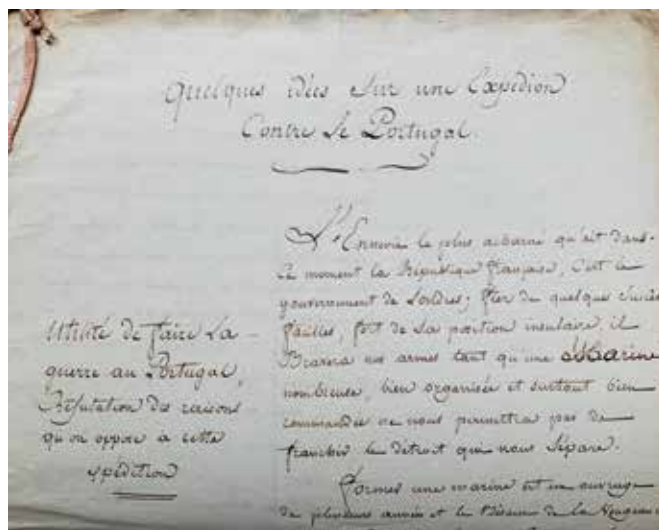 Quelques idées sur une Expédion
Contre le Portugal.
Utilité de faire la
guerre au Portugal,
Réfutation des raisons
qu'on oppose à cette
expédition
L'Ennemi le plus acharné qu'ait dans
ce moment la République française, C'est le
gouvernement de Londres; fier de quelques succès
faciles, fort de sa position insulaire, il
Bravera nos armes tant qu'une Marine
nombreuse, bien organisée et surtout bien
commandée ne nous permettra pas de
franchir le détroit qui nous sépare.
Former une marine est un ouvrage
de plusieurs années et le Besoin de la